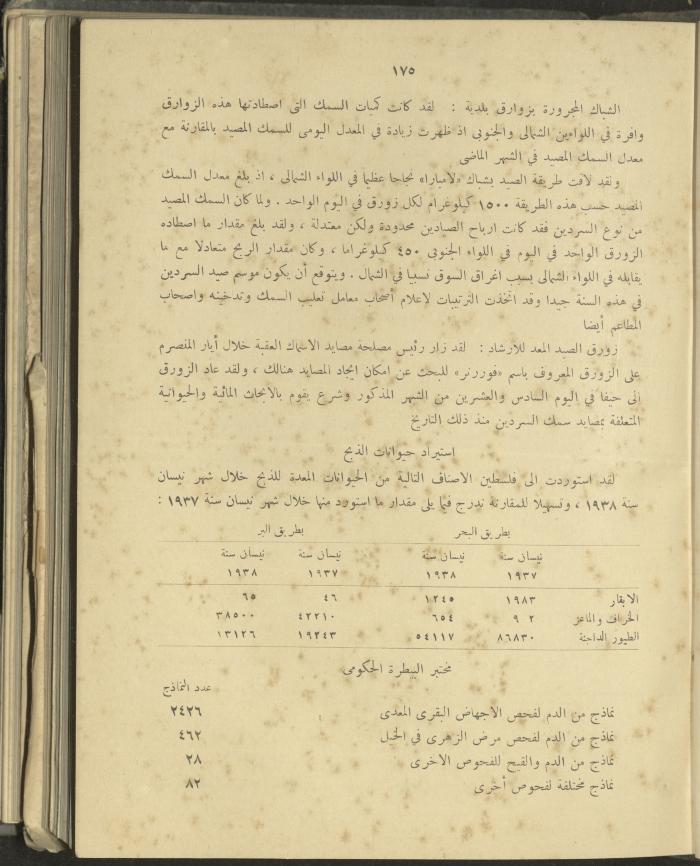 ١٧٥
الشباك المجرورة بزوارق بلدية : لقد كانت كميات السمك التى اصطادتها هذه الزوارق
وافرة في اللوائين الشمالى والجنوبى اذ ظهرت زيادة في المعدل اليومى للسمك المصيد بالمقارنة مع
معدل السمك المصيد في الشهر الماضى
ولقد لاقت طريقة الصيد بشباك «لامبارا» نجاحا عظيما في اللواء الشمالى ، اذ بلغ معدل السمك
المصيد حسب هذه الطريقة ١٥٠٠ كيلوغرام لكل زورق في اليوم الواحد . ولما كان السمك المصيد
من نوع السردين فقد كانت ارباح الصيادين محدودة ولكن معتدلة ، ولقد بلغ مقدار ما اصطاده
الزورق الواحد في اليوم في اللواء الجنوبى ٤٥٠ كيلوغراما ، وكان مقدار الربح متعادلا مع ما
يقابله في اللواء الشمالى بسبب اغراق السوق نسبيا في الشمال . ويتوقع أن يكون موسم صيد السردين
في هذه السنة جيدا وقد اتخذت الترتيبات لاعلام أصحاب معامل تعليب السمك وتدخينه واصحاب
المطاعم أيضا
زورق الصيد المعد للارشاد : لقد زار رئيس مصلحة مصايد الاسماك العقبة خلال أيار المنصرم
على الزورق المعروف باسم «فوررنر» للبحث عن امكان ايجاد المصايد هنالك ، ولقد عاد الزورق
الى حيفا في اليوم السادس والعشرين من الشهر المذكور وشرع يقوم بالابحاث المائية والحيوانية
المتعلقة بمصايد سمك السردين منذ ذلك التاريخ
استيراد حيوانات الذبح
لقد استوردت الى فلسطين الاصناف التالية من الحيوانات المعدة للذبح خلال شهر نيسان
سنة ١٩٣٨ ، وتسهيلا للمقارنة ندرج فيما يلى مقدار ما استورد منها خلال شهر نيسان سنة ١٩٣٧ :
بطريق البحر بطريق البر
نيسان سنة نيسان سنة نيسان سنة نيسان سنة
١٩٣٧ ١٩٣٨ ١٩٣٧ ١٩٣٨
الابقار ١٩٨٣ ١٢٤٥ ٤٦ ٦٥
الخراف والماعز ٩ ٢ ٦٥٤ ٤٢٢١٠ ٣٨٥٠٠
الطيور الداجنة ٨٦٨٣٠ ٥٤١١٧ ١٩٢٤٣ ١٣١٢٦
مختبر البيطرة الحكومى
عدد النماذج
نماذج من الدم لفحص الاجهاض البقرى المعدى ٢٤٢٦
نماذج من الدم لفحص مرض الزهرى في الخيل ٤٦٢
نماذج من الدم والقيح للفحوص الاخرى ٢٨
نماذج مختلفة لفحوص أخرى ٨٢